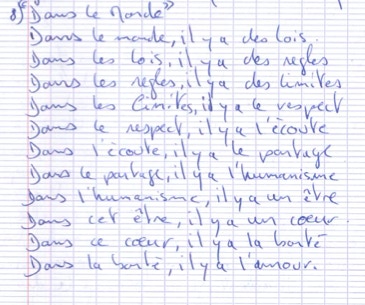 8) "Dans le Monde"
Dans le monde, il y a des lois.
Dans les lois, il y a des règles
Dans les règles, il y a des limites
Dans les limites, il y a le respect
Dans le respect, il y a l'écoute
Dans l'écoute, il y a le partage
Dans le partage, il y a l'humanisme
Dans l'humanisme, il y a un être
Dans cet être, il y a un coeur.
Dans ce coeur, il y a la bonté
Dans la bonté, il y a l'amour.